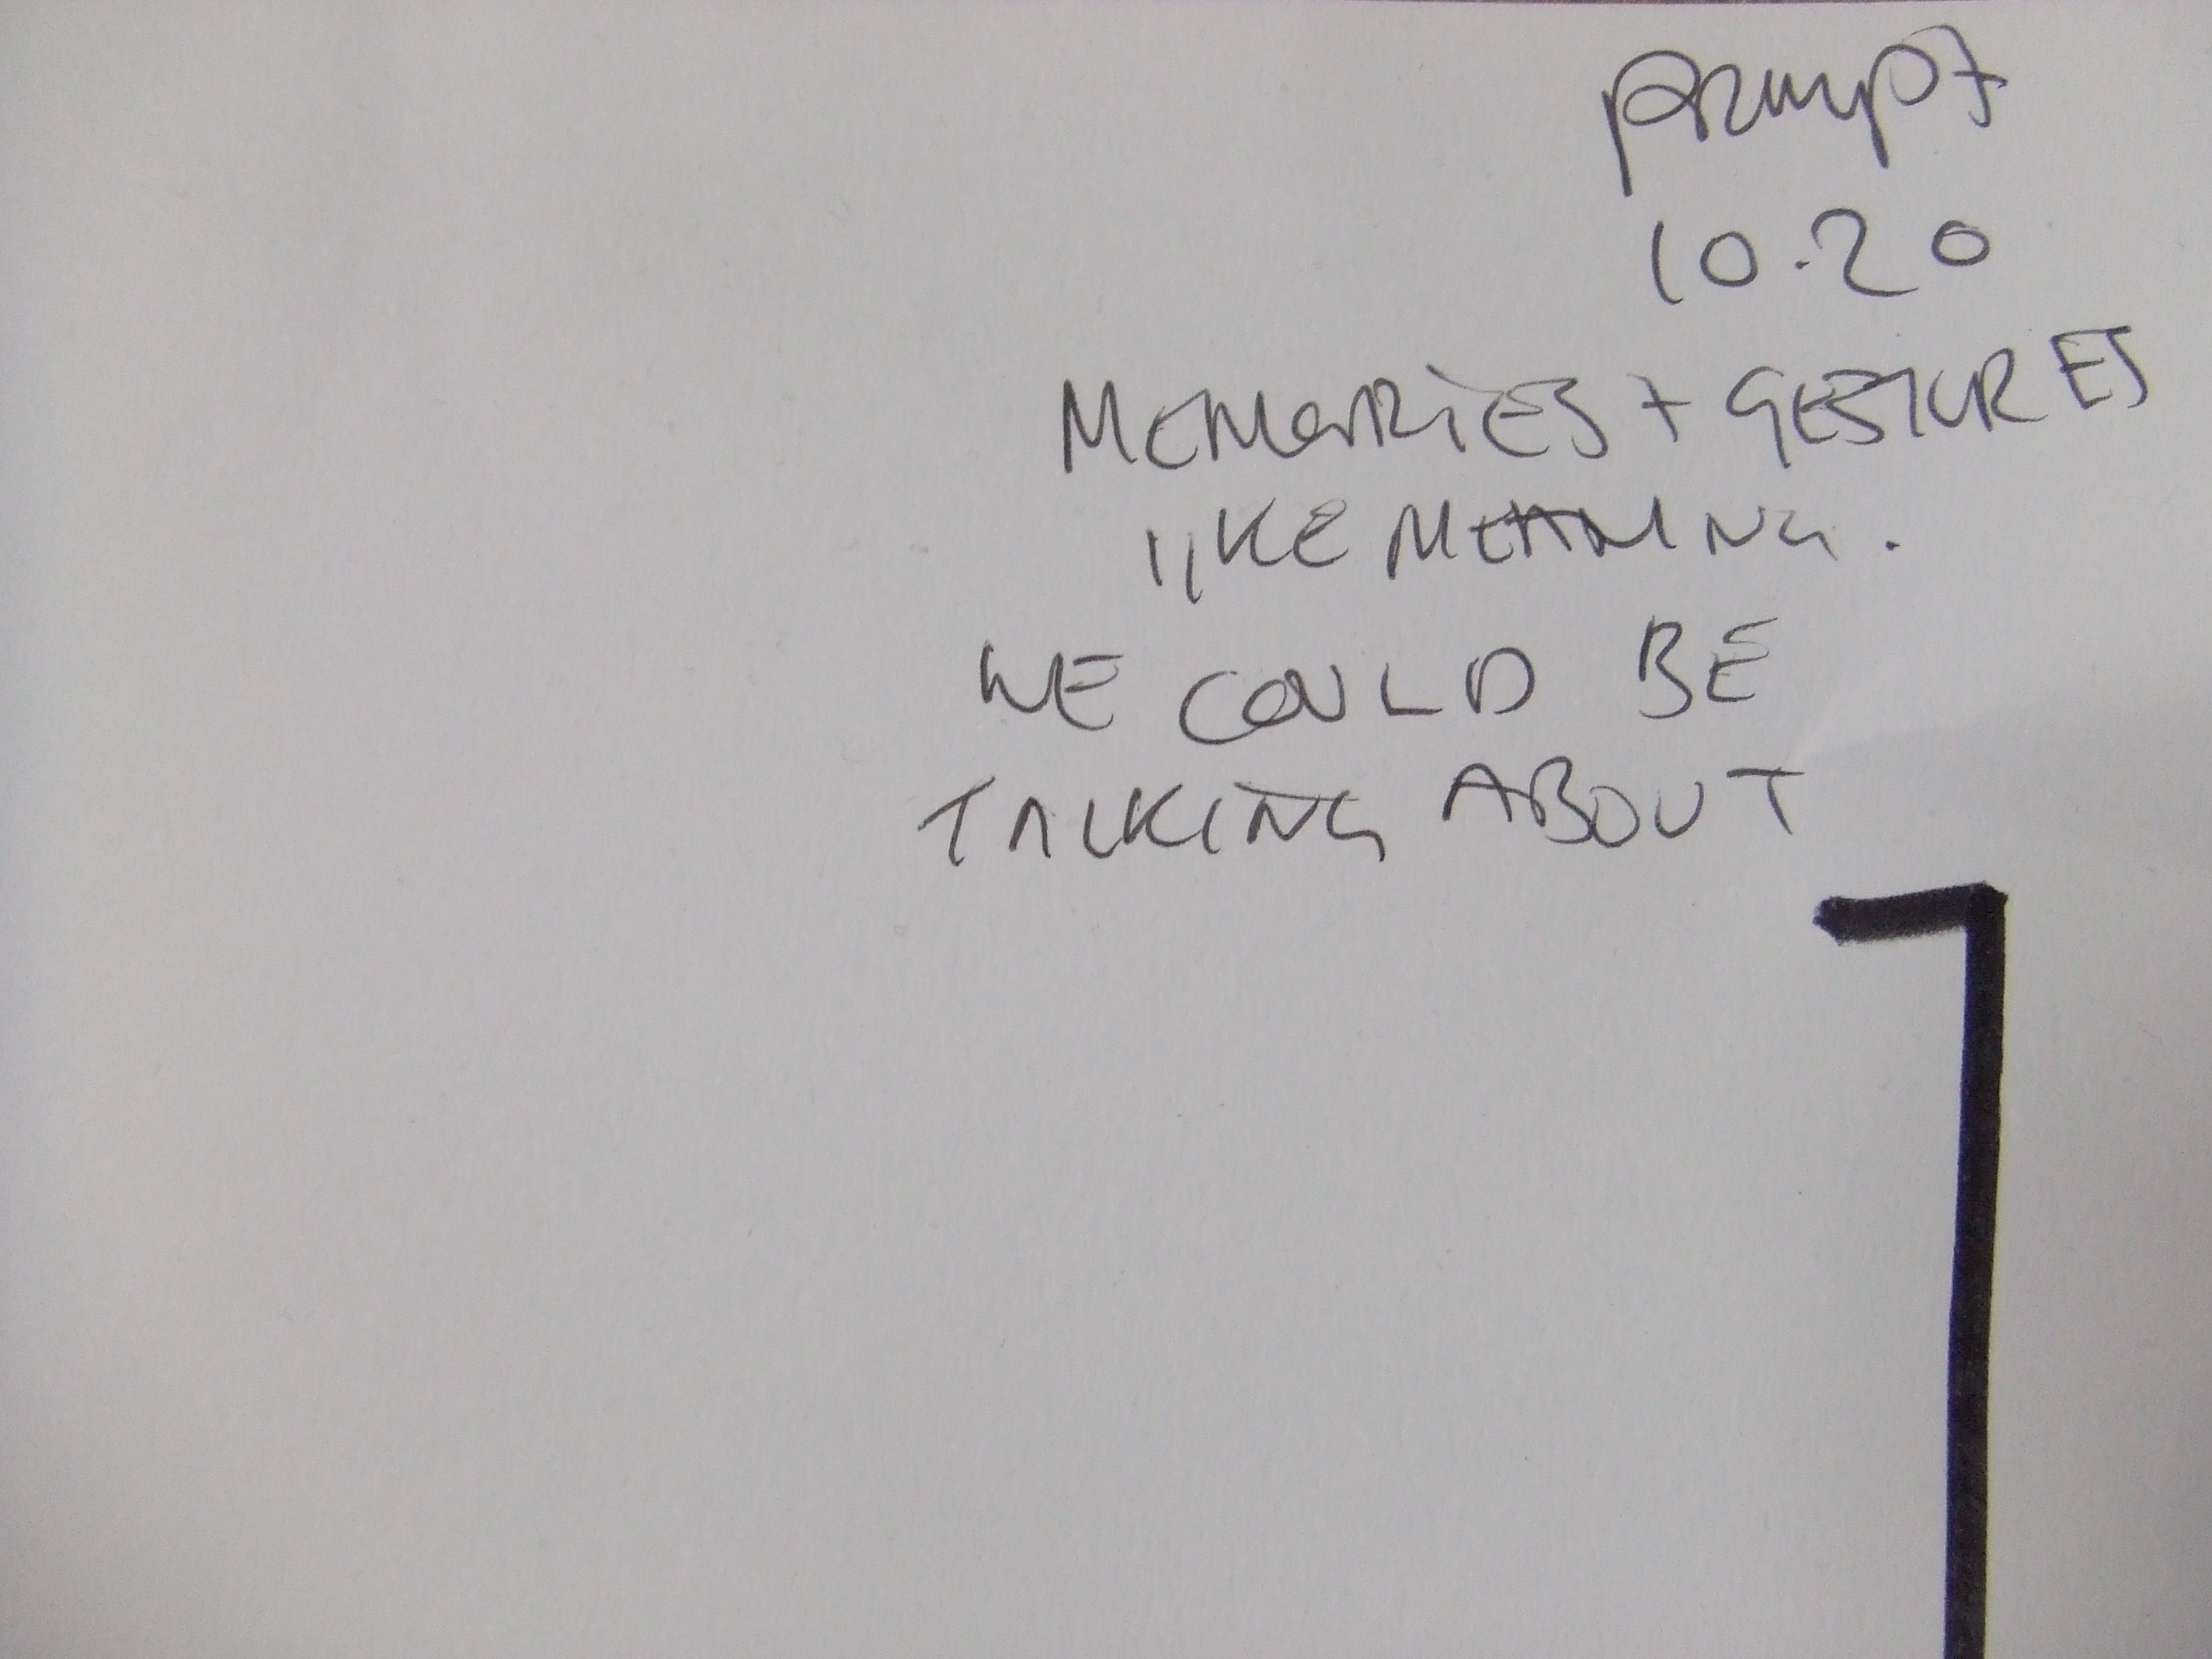 prompt
10.20
MEMORIES + GESTURES
LIKE MEANING.
WE COULD BE
TALKING ABOUT